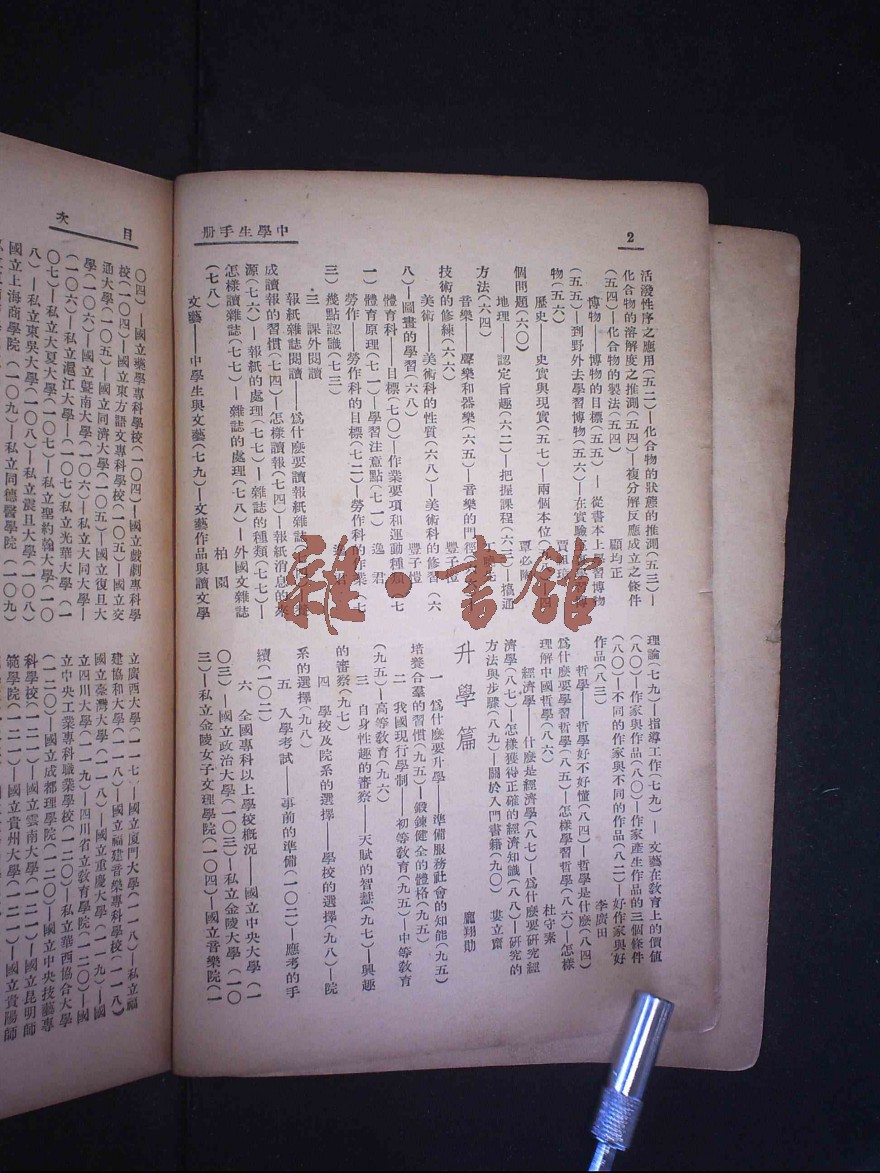 2
中學生手册
活潑性序之應用（五二）—化合物的狀態的推測（五三）—
化合物的溶解度之推測（五四）—複分解反應成立之條件
（五四）—化合物的製法（五四） 顧均正
博物——博物的目標（五五）—從書本上學習博物
（五五）—到野外去學習博物（五六）—在實驗
物（五六）
歷史——史實與現實（五七）—兩個本位（
個問題（六〇） 覃必陶
地理——認定旨趣（六二）—把握課程（六三）—搞通
方法（六四）
音樂——聲樂和器樂（六五）—音樂的門徑
技術的修練（六六） 豐子愷
美術——美術科的性質（六八）—美術科的修習（六
八）—圖畫的學習（六八） 豐子愷
體育科——目標（七〇）—作業要項和運動種類（七
一）體育原理（七一）—學習注意點（七一） 逸君
勞作——勞作科的目標（七二）—勞作科的作業（七
三）幾點認識（七三）
三 課外閱讀
報紙雜誌閱讀——爲什麼要讀報紙雜誌
成讀報的習慣（七四）—怎樣讀報（七四）—報紙消息的來
源（七六）—報紙的處理（七七）—雜誌的種類（七七）—
怎樣讀雜誌（七七）—雜誌的處理（七八）—外國文雜誌
（七八） 柏園
文藝——中學生與文藝（七九）—文藝作品與讀文學
理論（七九）—指導工作（七九）—文藝在敎育上的價値
（八〇）—作家與作品（八〇）—作家產生作品的三個條件
（八〇）—不同的作家與不同的作品（八二）—好作家與好
作品（八三） 李廣田
哲學——哲學好不好懂（八四）—哲學是什麼（八四）
爲什麼要學習哲學（八五）—怎樣學習哲學（八六）—怎樣
理解中國哲學（八六） 杜守素
經濟學——什麼是經濟學（八七）—爲什麼要研究經
濟學（八七）—怎樣獲得正確的經濟知識（八八）—研究的
方法與步驟（八九）—關於入門書籍（九〇） 婁立齋
升學篇 龐翔勛
一 爲什麼要升學——準備服務社會的知能（九五）
培養合羣的習慣（九五）—鍛鍊健全的體格（九五）
二 我國現行學制——初等敎育（九五）—中等敎育
（九五）—高等敎育（九六）
三 自身性趣的審察——天賦的智慧（九七）—興趣
的審察（九七）
四 學校及院系的選擇——學校的選擇（九八）—院
系的選擇（九八）
五 入學考試——事前的準備（一〇二）—應考的手
續（一〇二）
六 全國專科以上學校槪況——國立中央大學（一
〇三）—國立政治大學（一〇三）—私立金陵大學（一〇
三）—私立金陵女子文理學院（一〇四）—國立音樂院（一
目次
〇四）—國立藥學專科學校（一〇四）—國立戲劇專科學
校（一〇四）—國立東方語文專科學校（一〇五）—國立交
通大學（一〇五）—國立同濟大學（一〇五）—國立復旦大
學（一〇六）—國立曁南大學（一〇六）—私立大同大學—
（一〇六）—私立滬江大學—（一〇七）私立光華大學（一
〇七）—私立大夏大學（一〇七）—私立聖約翰大學（一〇
八）—私立東吳大學（一〇八）—私立震旦大學（一〇八）
國立上海商學院（一〇九）—私立同德醫學院（一〇九）
立廣西大學（一一七）—國立廈門大學（一一八）—私立福
建協和大學（一一八）—國立福建音樂專科學校（一一八）
國立臺灣大學（一一八）—國立重慶大學（一一九）—國
立四川大學（一一九）—四川省立敎育學院（一二〇）—國
立中央工業專科職業學校（一二〇）—私立華西協合大學
（一二〇）—國立成都理學院（一二〇）—國立中央技藝專
科學校（一二一）—國立雲南大學（一二一）—國立昆明師
範學院（一二一）—國立貴州大學（一二一）—國立貴陽師
雜·書館